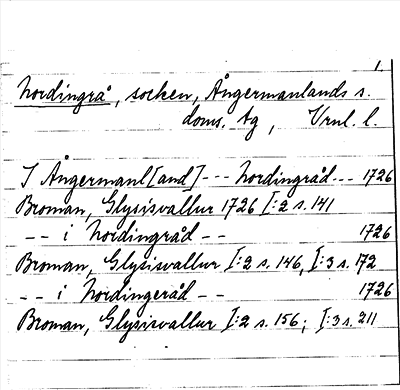 1.
Nordingrå, socken, Ångermanlands s.
doms. tg, Vrnl. l.
I Ångermanl[and] --- Nordingråd --- 1726
Broman, Glysisvallur 1726 I:2 s. 141
-- i Nordingråd -- 1726
Broman, Glysisvallur I:2 s. 146, I:3 s. 172
-- i Nordingeråd -- 1726
Broman, Glysisvallur I:2 s. 156; I:3 s. 211